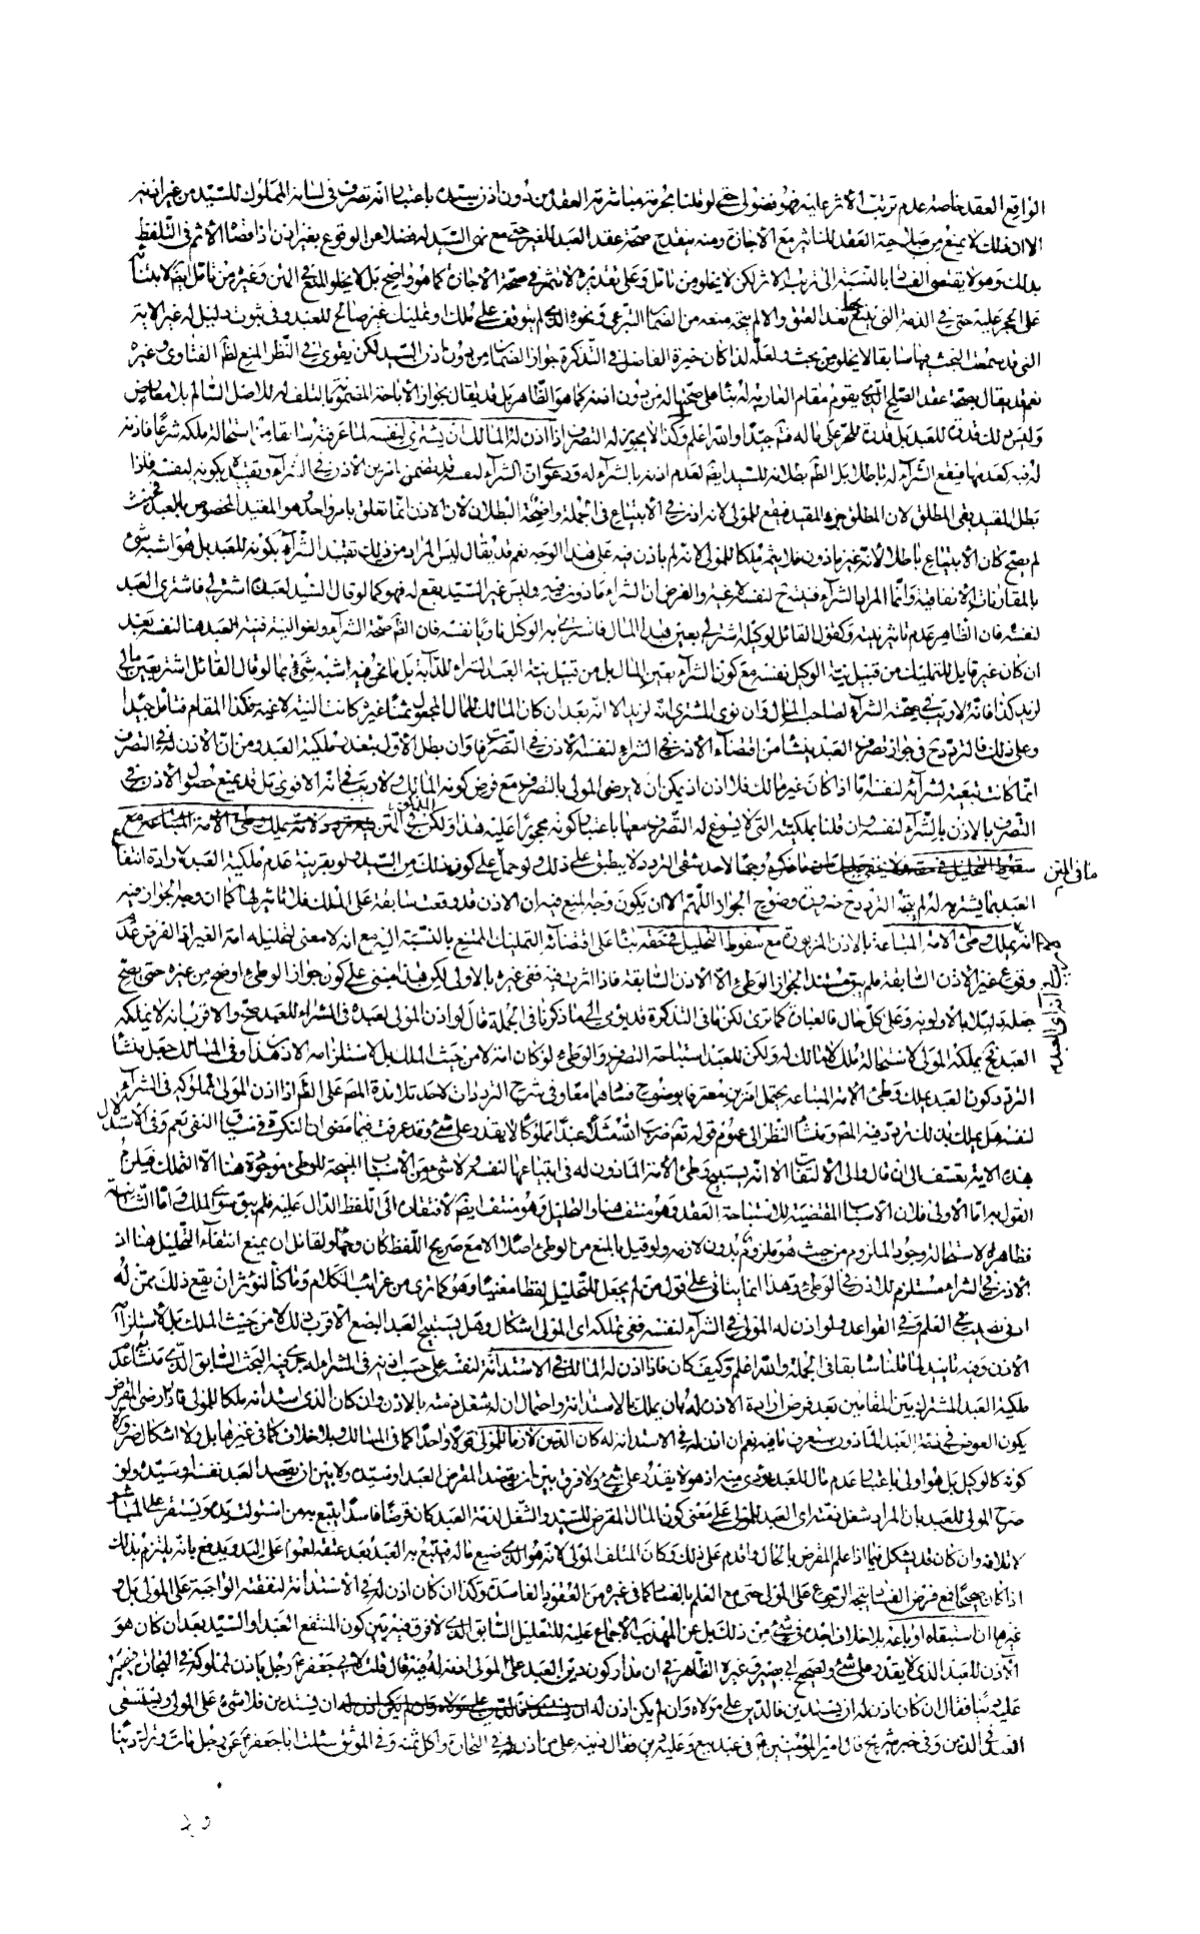 الواقع العقد خاصة عدم ترتب الأثر عليه فهو فضولي حتى لو قلنا بحرمة مباشرته العقد من دون اذن سيده باعتبار انه تصرف في لسانه المملوك للسيد من غير اذنه
الا ان ذلك لا يمنع من صلاحية العقد للتاثير مع الاجازة ومنه ينقدح صحة عقد العبد للغير حتى مع نهي السيد له فضلا عن الوقوع بغير اذن اذ اقصاه الاثم في التلفظ
بذلك وهو لا يقتضي الفساد بالنسبة الى ترتب الاثر لكن لا يخلو من تامل وعلى تقديره لا يثمر في صحة الاجازة كما هو واضح بل لا يخلو المنع في المتن وغيره من تامل ايضا لا بتناء
على الحجر عليه حتى في الذمة التي يتبع بها بعد العتق والا لم يتجه منعه من الضمان التبرعي ونحوه الذي لم يتوقف على ملك او تمليك غير صالح للعبد وفي ثبوت دليل له غير الاية
التي قد سمعت البحث فيها سابقا لا يخلو من بحث ولعله لذا كان خيرة الفاضل في التذكرة جواز الضمان من دون اذن السيد لكن يقوى في النظر المنع لظاهر الفتاوى وغيره
نعم قد يقال بصحة عقد الصلح الذي يقوم مقام العارية له بناء على صحتها له من دون اذنه كما هو الظاهر بل قد يقال بجواز الاباحة المضمونة بالتلف له للاصل السالم بلا معارض
وليس ذلك قدرة للعبد بل قدرة للحر على ماله فتامل جيدا والله اعلم وكذا لا يجوز له التصرف اذا اذن له المالك ان يشتري لنفسه لما عرفته سابقا من استحالة ملكه شرعا فاذنه
له فيه كعدمها فيقع الشراء له باطلا بل الظاهر بطلانه للسيد ايضا لعدم اذنه بالشراء له ودعوى ان الشراء لنفسه قد تضمن امرين الاذن في الشراء وتقييده بكونه لنفسه فاذا
بطل المقيد بقي المطلق لان المطلق جزء المقيد فيقع للمولى لانه اذن في الابتياع في الجملة واضحة البطلان لان الاذن انما تعلق بامر واحد هو المقيد المخصوص بالعبد فحيث
لم يصح كان الابتياع باطلا لانه غير ماذون فلا يثمر ملكا للمولى لانه لم ياذن فيه على هذا الوجه نعم قد يقال ليس المراد من ذلك تقييد الشراء بكونه للعبد بل هو اشبه شيء
بالمقارنات الاتفاقية وانما المراد الشراء فنيته ح لنفسه لاغية والفرض ان الشراء ماذون فيه وليس غير السيد يقع له فهو كما لو قال السيد لعبده اشتر لي فاشترى العبد
لنفسه فان الظاهر عدم تاثير نيته وكقول القائل لوكيله اشتر لي بعين هذا المال فاشترى به الوكيل ناويا نفسه فان الظاهر صحة الشراء ولغو النية فنية العبد هنا لنفسه بعد
ان كان غير قابل للتمليك من قبيل نية الوكيل نفسه مع كون الشراء بعين المال بل من قبيل نية العبد لشراء للدابة بل ما نحن فيه اشبه شيء بما لو قال القائل اشتر بعين مالي
لزيد كذا فانه لا ريب في صحة الشراء لصاحب المال وان نوى المشتري انه لزيد الا انه بعد ان كان المالك للمال المجعول ثمنا غيره كانت النية لاغية فكذا المقام فتامل جيدا
وعلى ذلك فالتردد ح في جواز تصرف العبد ينشا من اقتضاء الاذن في الشراء لنفسه الاذن في التصرف فيها وان بطل الاول بتعذر ملكية العبد ومن ان الاذن له في التصرف
انما كانت تبعية لشرائه لنفسه اما اذا كان غير مالك فلا اذن اذ يمكن ان لا يرضى المولى بالتصرف مع فرض كونه المالك ولا ريب في انه الاقوى بل قد يمنع حصول الاذن في
التصرف بالاذن بالشراء لنفسه وان قلنا بملكيته التي لا يسوغ له التصرف معها باعتبار كونه محجورا عليه هذا ولكن في المتن
ما في المتن
وجها لاحد شقي التردد لا يطبق على ذلك ولو حمل على كون ذلك من السيد ولو بقرينة عدم ملكية العبد لارادة انتفاع
العبد بما يشتريه له لم يتجه التردد ح فيه وفي وضوح الجواز اللهم الا ان يكون وجه المنع فيه ان الاذن قد وقعت سابقة على الملك فلا تاثير لها كما ان وجه الجواز فيه
انه يملك وطئ الامة المبتاعة بالاذن المزبورة مع سقوط التحليل في حقه بناء على اقتضائه التمليك الممتنع بالنسبة اليه مع انه لا معنى لتحليله امة الغير اذ الفرض عدم
وقوع غير الاذن السابقة فلم يبق مستند لجواز الوطئ الا الاذن السابقة فاذا اثرت فيه ففي غيره بالاولى لكن هذا مبني على كون جواز الوطئ اوضح من غيره حتى يصح
جعله دليلا بالاولوية وعلى كل حال فالعبارة كما ترى لكن ما في التذكرة قد يومي الى ما ذكرنا في الجملة قال لو اذن المولى لعبده في الشراء للعبد صح والاقرب انه لا يملكه
العبد بل يملكه المولى لاستحالة ملك لا مالك له ولكن للعبد استباحة التصرف والوطئ لو كان امة لا من حيث الملك بل لاستلزامه الاذن هذا وفي المسالك جعل منشأ
التردد كون العبد يملك وطئ الامة المبتاعة يحتمل امرين معترفا بوضوح فسادهما معا وفي شرح الترددات لاحد تلامذة المصنف على الظاهر اذا اذن المولى لمملوكه في الشراء
لنفسه هل يملك بذلك تردد فيه المصنف ومنشأ النظر الى عموم قوله تعالى ضرب الله مثلا عبدا مملوكا لا يقدر على شيء وقد عرفت فيما مضى ان النكرة في سياق النفي تعم وفي الاستدلال
بهذه الاية تعسف الى ان قال والى الالتفات الا انه يستبيح وطئ الامة الماذون له في ابتياعها لنفسه ولا شيء من الاسباب المبيحة للوطئ موجودة هنا الا التملك فيلزم
القول به اما الاولى فلان الاسباب المقتضية للاستباحة العقد وهو منتف هنا والتحليل وهو منتف ايضا لافتقاره الى اللفظ الدال عليه فلم يبق سوى الملك واما الثانية
فظاهرة لاستحالة وجود الملزوم من حيث هو ملزوم بدون لازمه ولو قيل بالمنع من الوطئ اصلا الا مع صريح اللفظ كان وجها ولقائل ان يمنع انتفاء التحليل هنا اذ
الاذن في الشراء مستلزم للاذن في الوطئ وهذا انما يتاتى على قول من لم يجعل للتحليل لفظا معينا وهو كما ترى من غرائب الكلام وما كنا لنؤثر ان يقع ذلك ممن له
ادنى نصيب في العلم وفي القواعد ولو اذن له المولى في الشراء لنفسه ففي تملكه اى المولى اشكال وهل يستبيح العبد البضع الاقرب ذلك لا من حيث الملك بل لاستلزامه
الاذن وفيه تاييد لما قلنا سابقا في الجملة والله اعلم وكيف كان فاذا اذن له المالك في الاستدانة لنفسه على حسب اذنه في الشراء له جرى فيه البحث السابق الذي منشأه عدم
ملكية العبد المشترك بين المقامين بعد فرض ارادة الاذن له بان يملك بالاستدانة واحتمال ان له شغل ذمته بالاذن وان كان الذي استدانه ملكا للمولى فاذا رضي المقرض
يكون العوض في ذمة العبد الماذون ستعرف ما فيه نعم ان اذن له في الاستدانة له كان الدين لازما للمولى قولا واحدا كما في المسالك وبلا خلاف كما في غيرها بل ولا اشكال ضرورة
كونه كالوكيل بل هو اولى باعتبار عدم مال للعبد يؤدي منه اذ هو لا يقدر على شيء ولا فرق بين ان يقصد المقرض العبد او سيده ولا بين ان يقصد العبد نفسه او سيده ولو
صرح المولى للعبد بان المراد شغل ذمته اي العبد للمولى على معنى كون المال المقرض للسيد والشغل لذمة العبد كان قرضا فاسدا يتبع به من استولت يده ويستقر على المباشر
لاتلافه وان كان قد يشكل فيما اذا علم المقرض بالحال واقدم على ذلك وكان المتلف المولى لانه هو الذي ضيع ماله فيتبع به العبد بعد عتقه لعموم على اليد ويدفع بانه يلتزم بذلك
اذا كان صحيحا فمع فرض الفساد يتجه الرجوع على المولى حتى مع العلم بالفساد كما في غيره من العقود الفاسدة وكذا ان كان اذن له في الاستدانة لنفقته الواجبة على المولى بل و
غيرها ان استبقاه او باعه بلا خلاف اجده في شيء من ذلك بل عن المهذب الاجماع عليه للتعليل السابق الذي لا فرق فيه بين كون المنتفع العبد او السيد بعد ان كان هو
الآذن للعبد الذي لا يقدر على شيء ولصحيح ابي بصير وغيره الظاهر في ان مدار كون دين العبد على المولى اذنه له فيه قال قلت لابي جعفر ع رجل ياذن لمملوكه في التجارة فيصير
عليه دين فقال ان كان اذن له ان يستدين فالدين على مولاه وان لم يكن اذن له ان يستدين فلا شيء على المولى ويستسعى
العبد في الدين وفي خبر شريح قال امير المؤمنين ع في عبد بيع وعليه دين فقال دينه على من اذن له في التجارة واكل ثمنه وفي الموثق سئلت ابا جعفر ع عن رجل مات وترك دينا